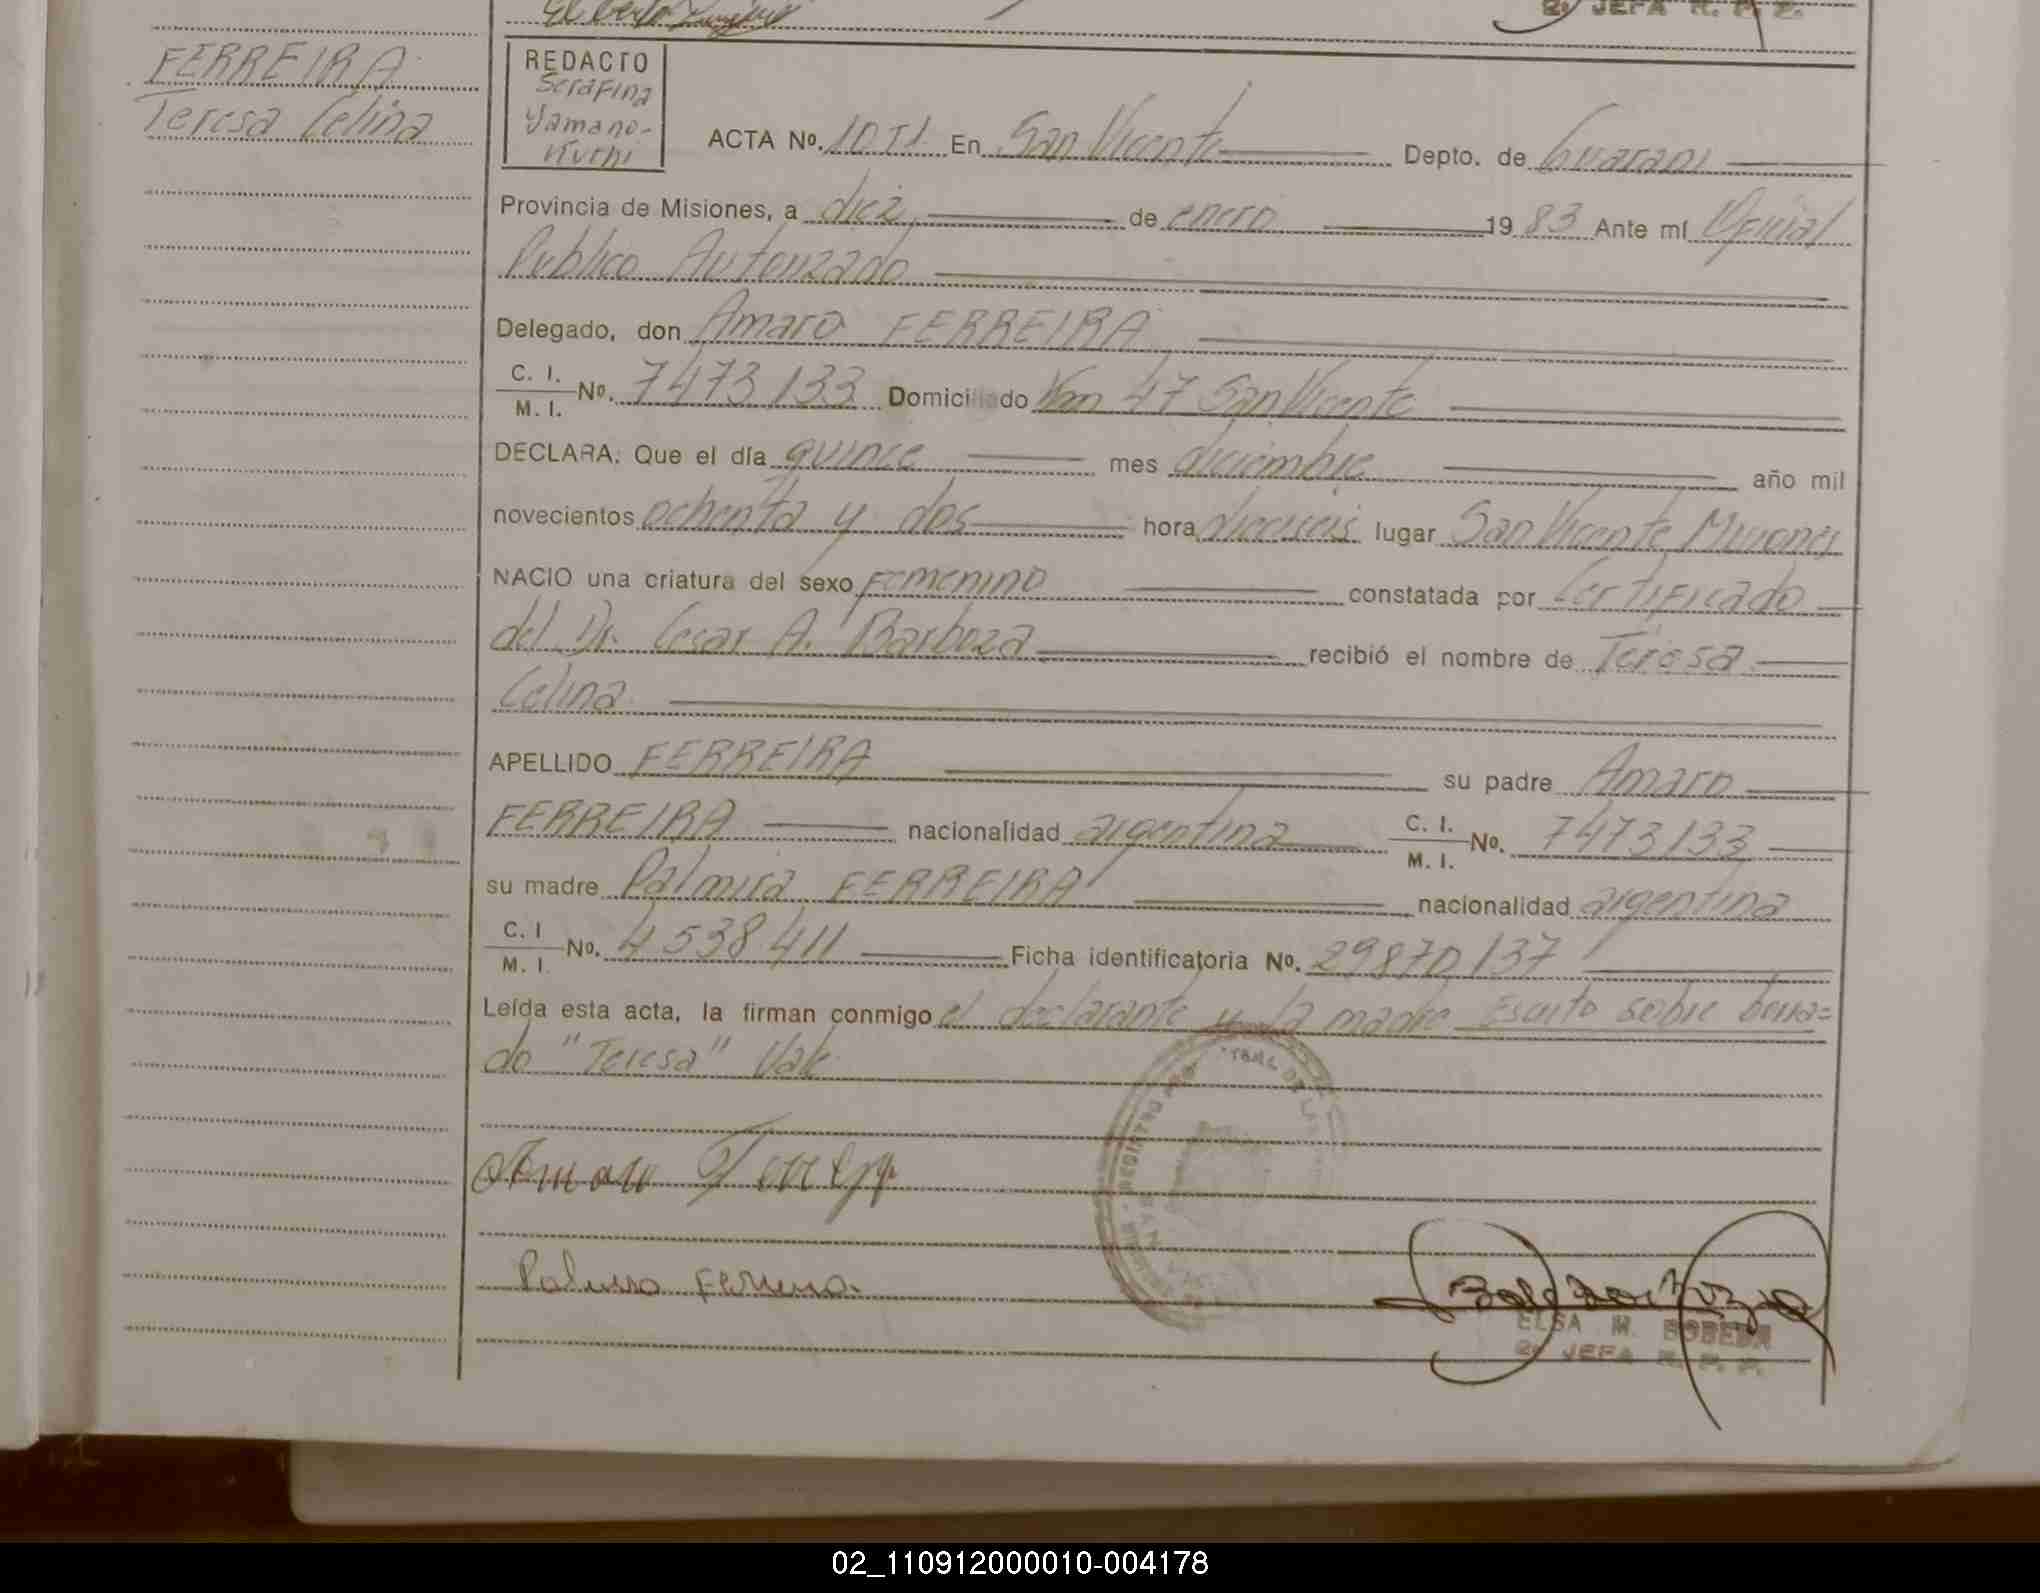 2. JEFA R. P. Z.
FERREIRA
Teresa Celina
REDACTO
Serafina
Yamano-
Kuchi
ACTA Nº. 1051 En San Vicente Depto. de Guarani
Provincia de Misiones, a diez de enero 1983 Ante mí Oficial
Publico Autorizado
Delegado, don Amaro FERREIRA
C. I.
M. I. Nº. 7473133 Domiciliado Km 47 San Vicente
DECLARA: Que el día quince mes diciembre año mil
novecientos ochenta y dos hora dieciseis lugar San Vicente Misiones
NACIO una criatura del sexo Femenino constatada por Certificado
del Dr. Cesar A. Barboza recibió el nombre de Teresa
Celina
APELLIDO FERREIRA su padre Amaro
FERREIRA nacionalidad argentina C. I. M. I. Nº. 7473133
su madre Palmira FERREIRA nacionalidad argentina
C. I M. I. Nº. 4538411 Ficha identificatoria Nº. 29870137
Leída esta acta, la firman conmigo el declarante y la madre Escrito sobre borra=
do "Teresa" Vale
Amaro Ferreira
Palmira Ferreira
ELSA M.
2. JEFA R. P. P.
02_110912000010-004178